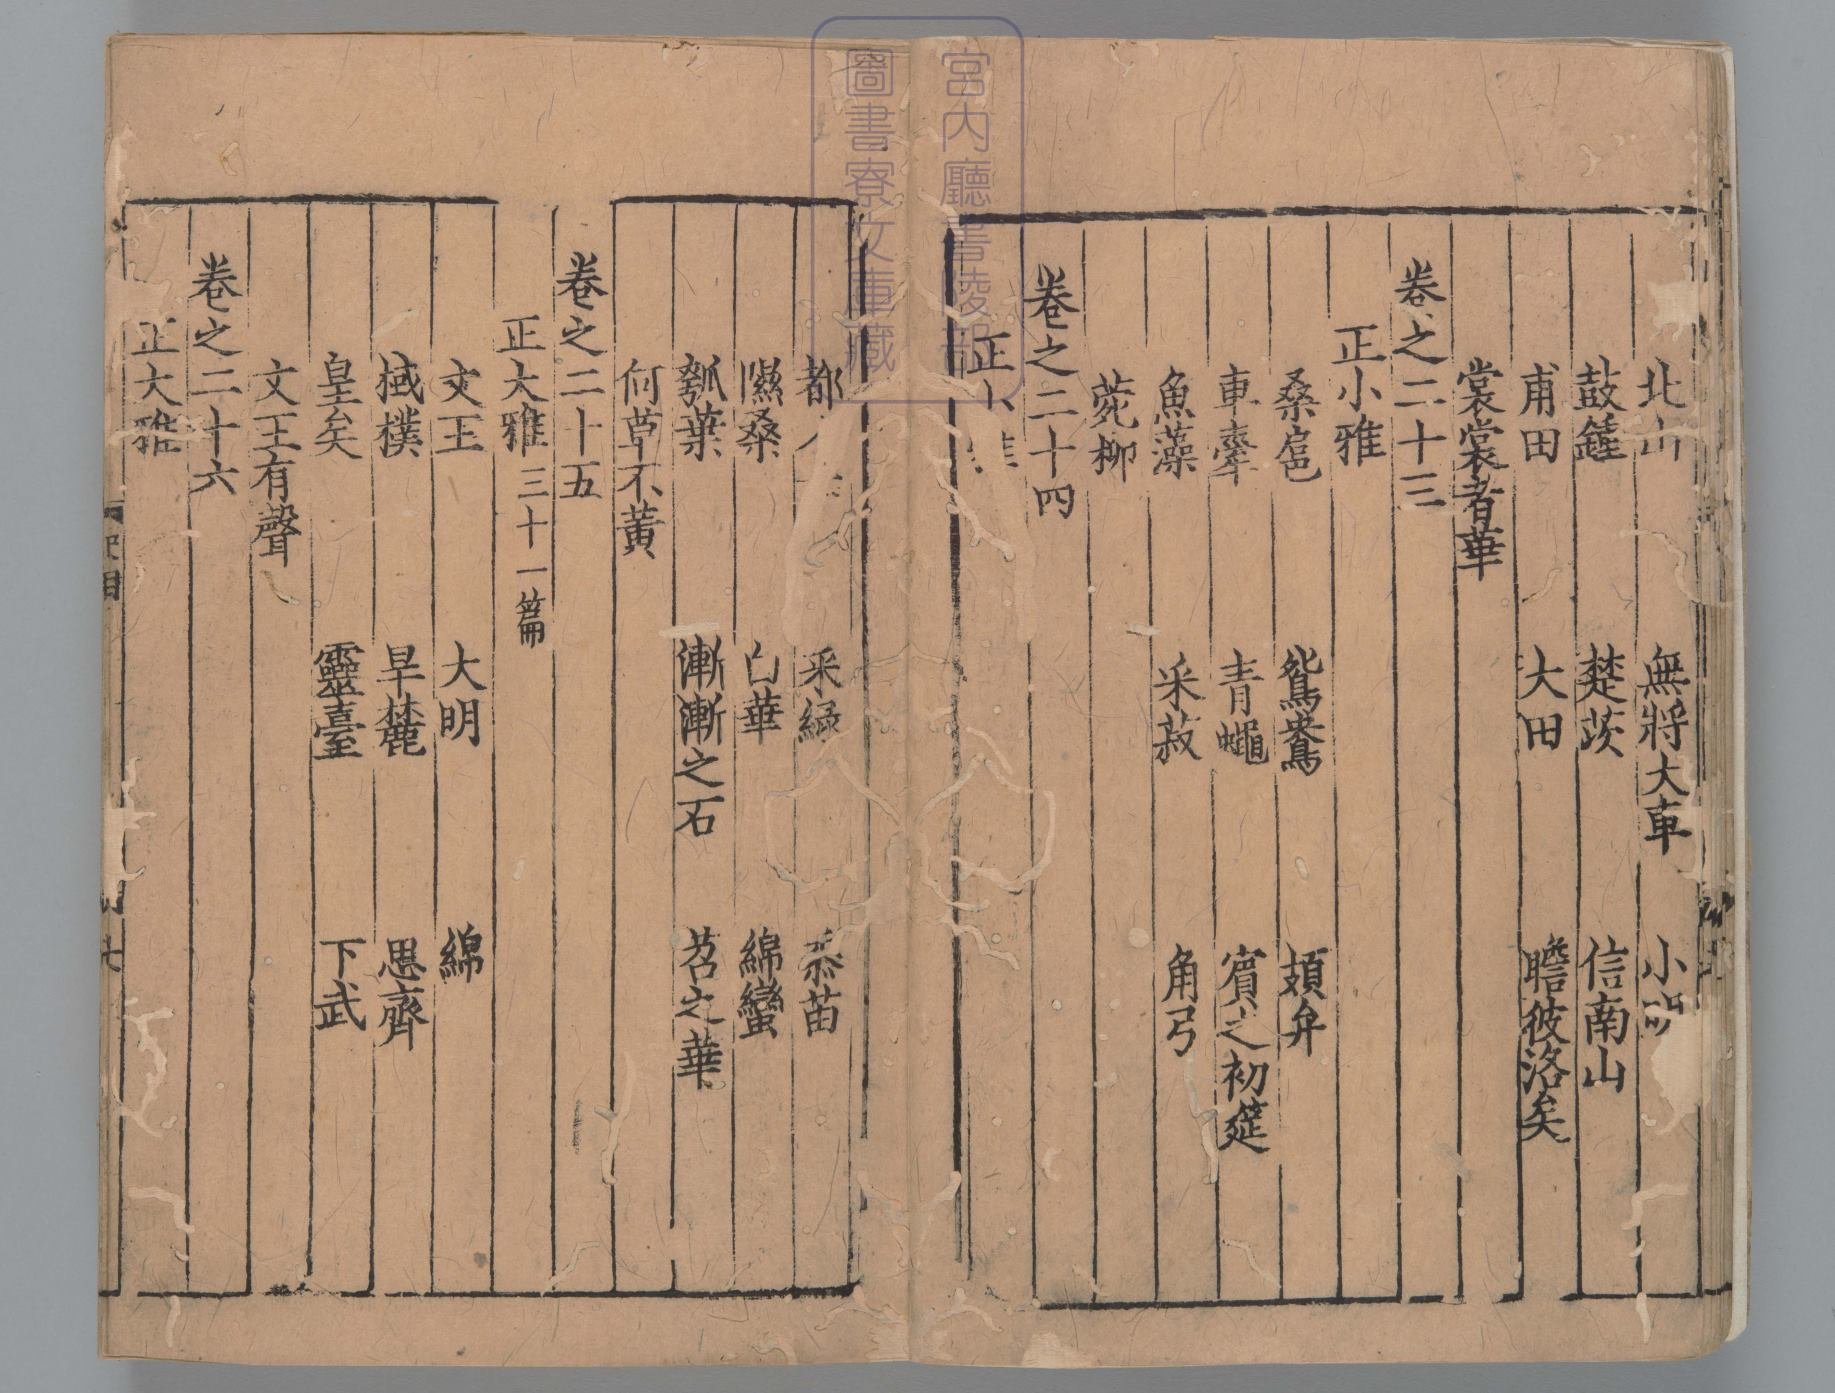 北山　無將大車　小明
鼓鍾　楚茨　信南山
甫田　大田　瞻彼洛矣
裳裳者華
卷之二十三
正小雅
桑扈　鴛鴦　頍弁
車舝　青蠅　賓之初筵
魚藻　采菽　角弓
菀柳
卷之二十四
正小雅
都人士　采綠　黍苗
隰桑　白華　綿蠻
瓠葉　漸漸之石　苕之華
何草不黃
卷之二十五
正大雅三十一篇
文王　大明　綿
棫樸　旱麓　思齊
皇矣　靈臺　下武
文王有聲
卷之二十六
正大雅
宮内廳書陵部
圖書寮文庫藏